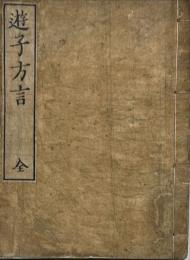 遊子方言
全